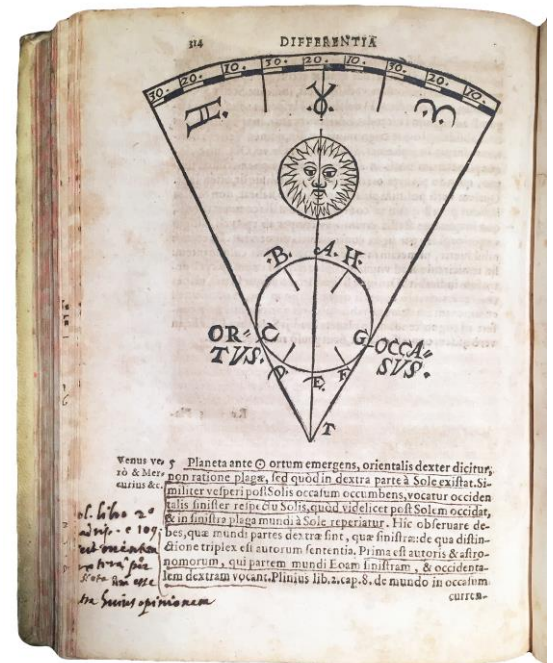 314 DIFFERENTIA
30. 20. 10. 30. 20. 10. 30. 20. 10.
♊. ♉. ♈.
B. A. H.
OR= C G OCCA=
TVS. SVS.
D. E. F
T
Venus ve-
rò & Mer-
curius &c.
5 Planeta ante ☉ ortum emergens, orientalis dexter dicitur,
non ratione plagæ, sed quòd in dextra parte à Sole existat. Si-
militer vesperi post Solis occasum occumbens, vocatur occiden
talis sinister respectu Solis, quòd videlicet post Solem occidat,
& in sinistra plaga mundi à Sole reperiatur. Hic observare de-
bes, quæ mundi partes dextræ sint, quæ sinistræ: de qua distin-
ctione triplex est autorum sententia. Prima est autoris & astro-
nomorum, qui partem mundi Eoam sinistram, & occidenta-
lem dextram vocant. Plinius lib. 2. cap. 8. de mundo in occasum
curren-
libro 2º
huius opinionem